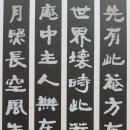 先有此庵方
世界壞時此
庵中主人無在
月照長空風